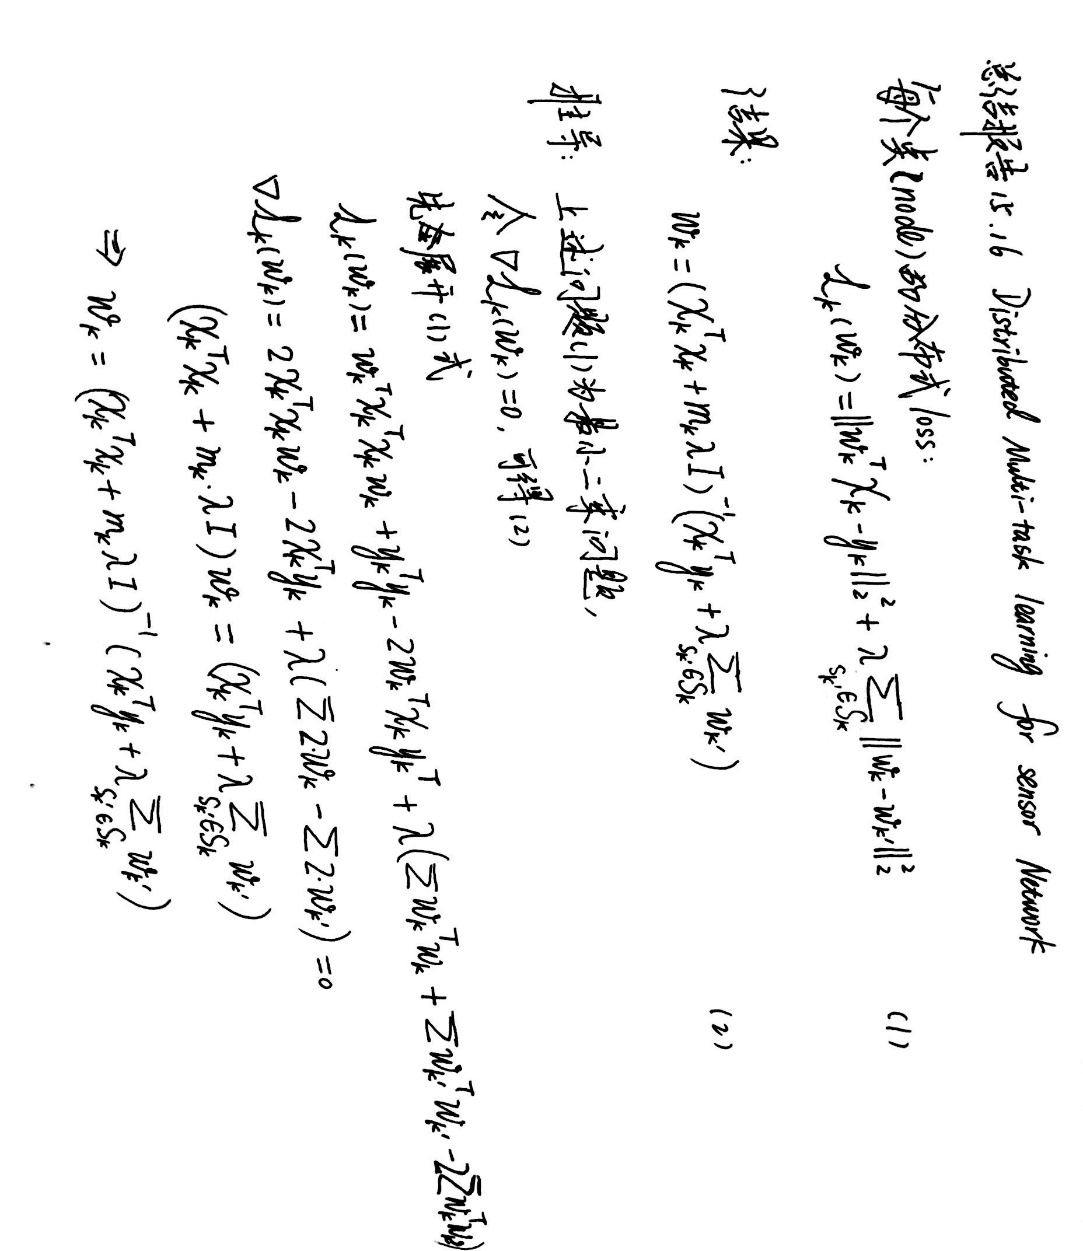 总结报告15.16 Distributed Multi-task learning for sensor Network
每个类(node)的分布式loss:
L_k(w_k) = ||w_k^T X_k - y_k||_2^2 + λ Σ_{S_k'∈S_k} ||w_k - w_k'||_2^2 (1)
结果:
w_k = (X_k^T X_k + m_k λ I)^{-1} (X_k^T y_k + λ Σ_{S_k'∈S_k} w_k') (2)
推导: 上述问题(1)为最小二乘问题,
令 ∇L_k(w_k) = 0, 可得(2)
先展开(1)式
L_k(w_k) = w_k^T X_k^T X_k w_k + y_k^T y_k - 2w_k^T X_k y_k^T + λ(Σ w_k^T w_k + Σ w_k'^T w_k' - 2Σ w_k^T w_k')
∇L_k(w_k) = 2X_k^T X_k w_k - 2X_k^T y_k + λ(Σ 2·w_k - Σ 2·w_k') = 0
(X_k^T X_k + m_k·λ I) w_k = (X_k^T y_k + λ Σ_{S_k'∈S_k} w_k')
⇒ w_k = (X_k^T X_k + m_k λ I)^{-1} (X_k^T y_k + λ Σ_{S_k'∈S_k} w_k')